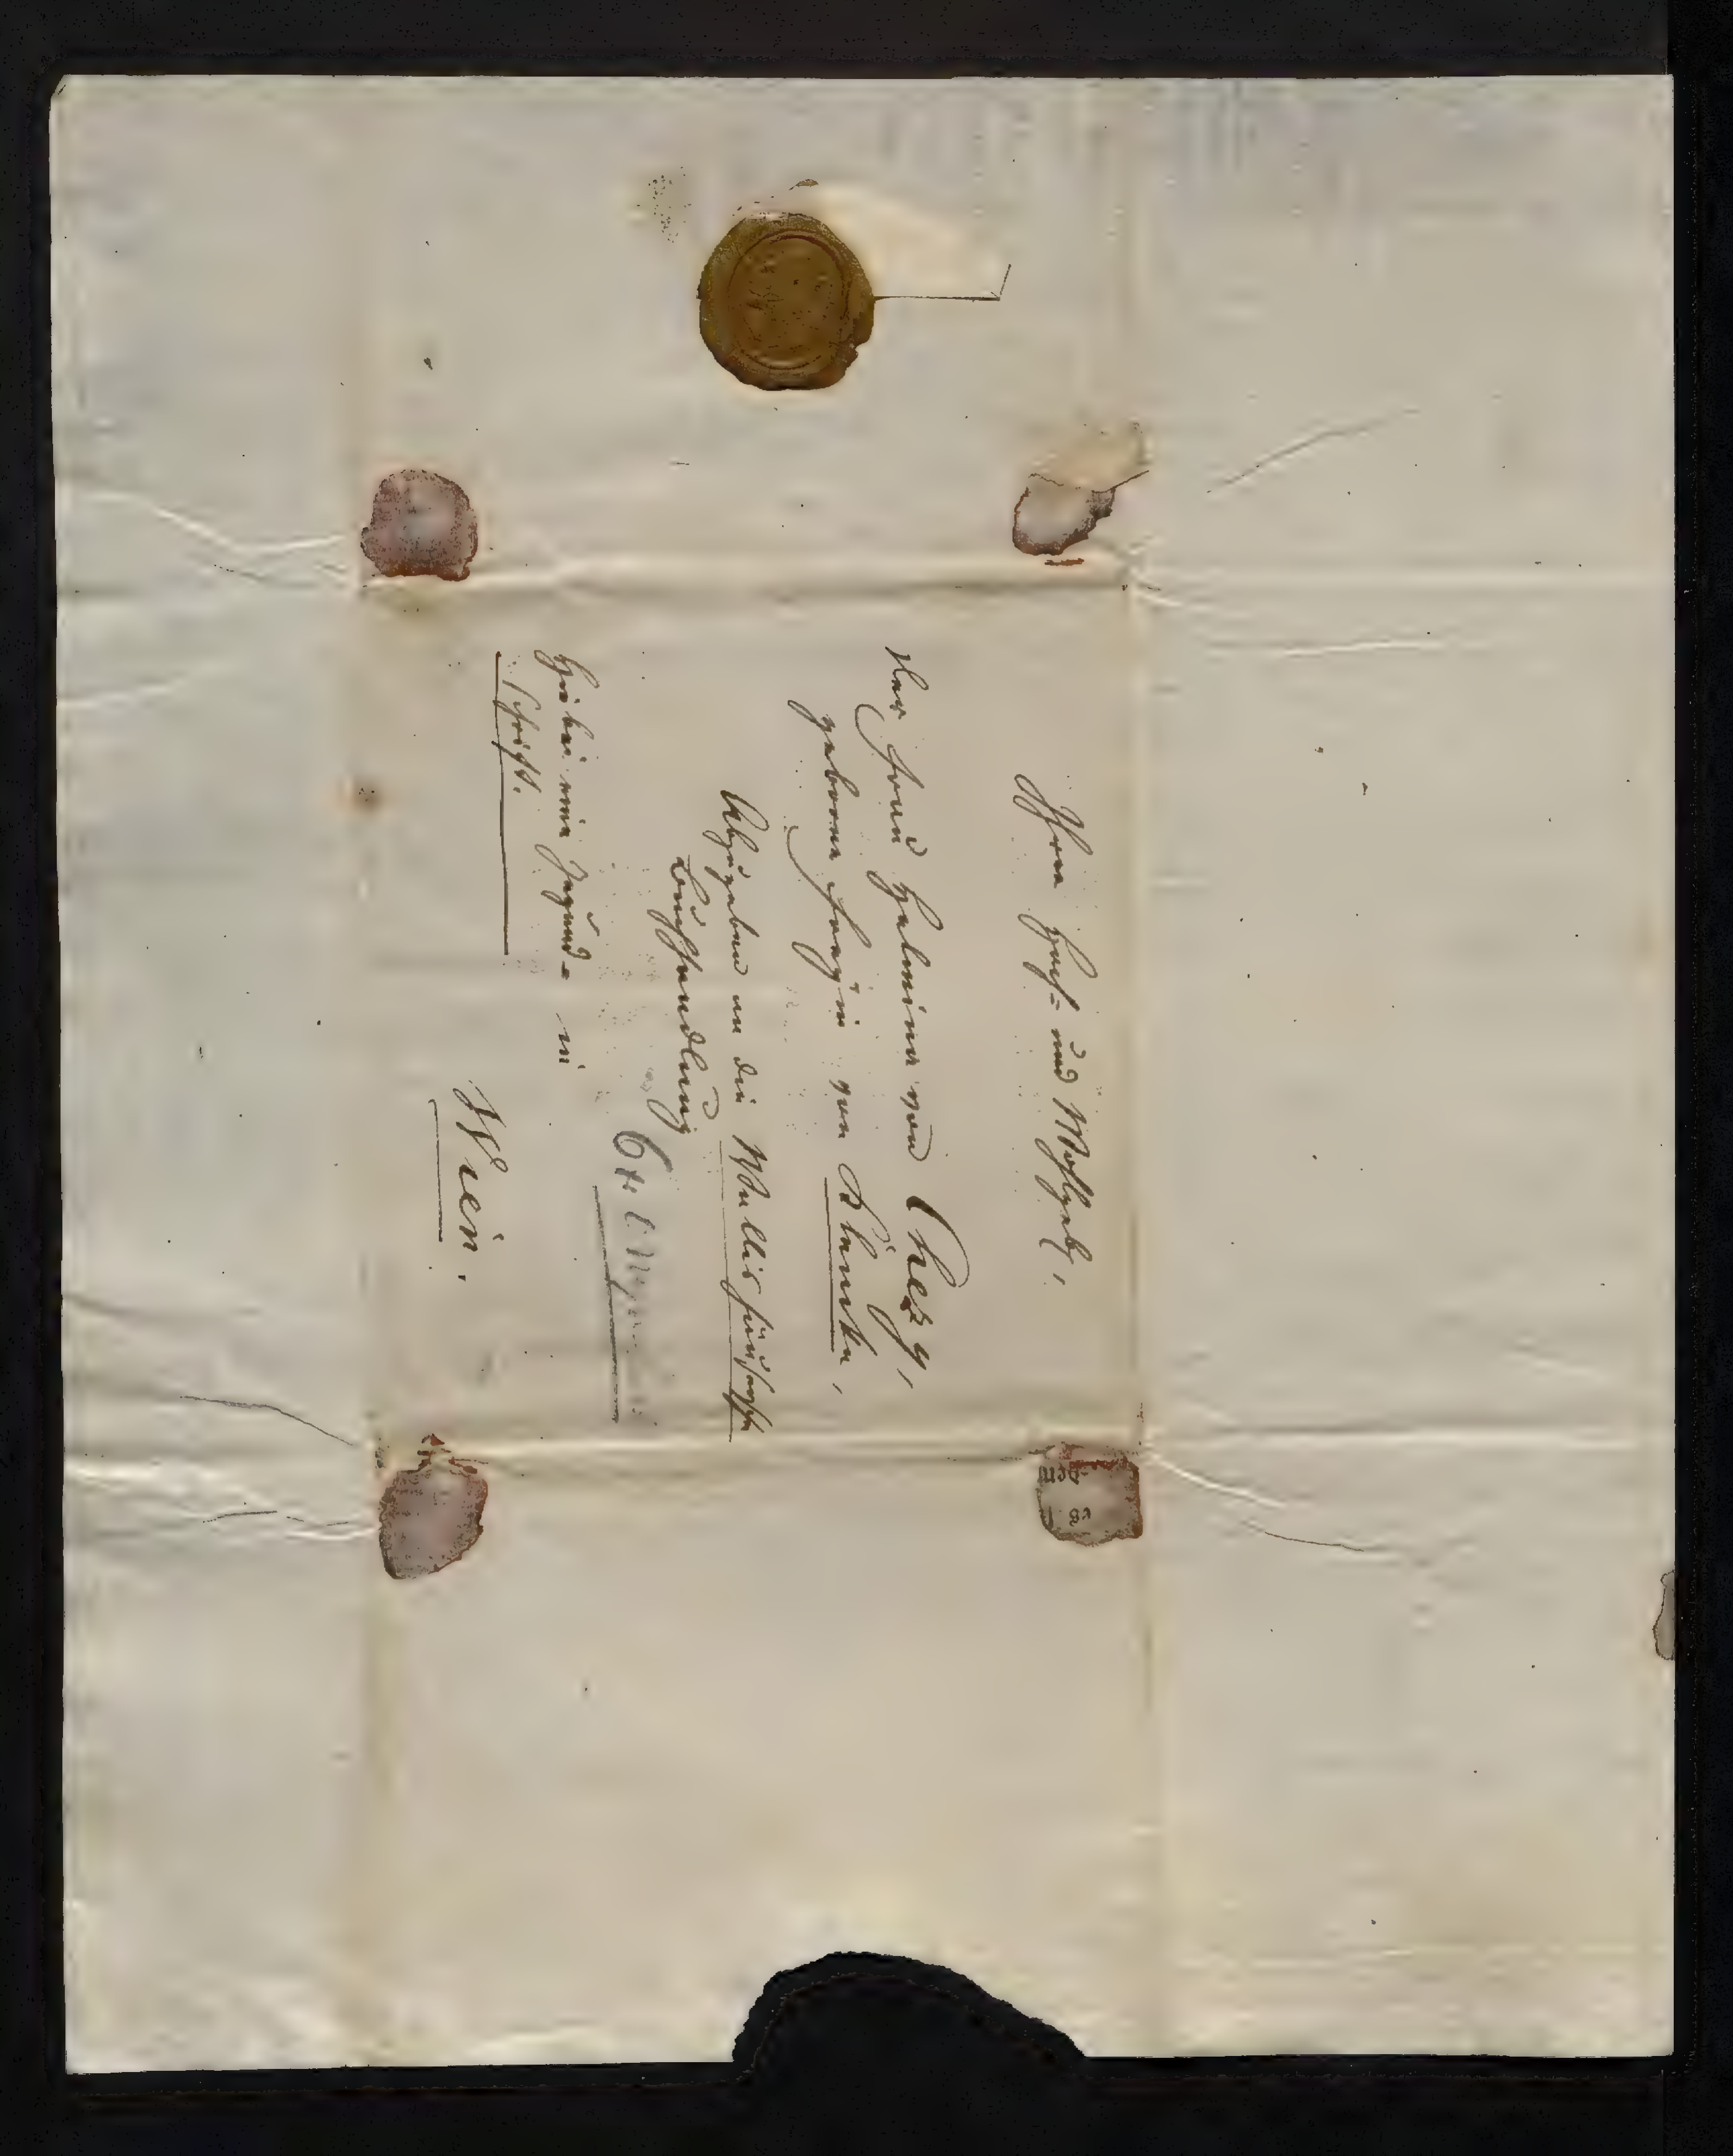 Ihrer Hoch- und Wohlgeb,
der Frau Helmina von Chezy,
geborne Freyin von Klenke,
Abzugeben an die Wallishaußersche
Buchhandlung
6 fl
Hiebei eine Jugend- in
schrift.
Wien.